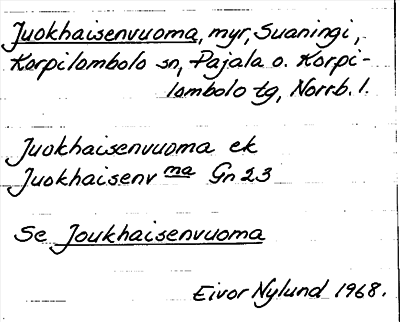 Juokhaisenvuoma, myr, Suaningi,
Korpilombolo sn, Pajala o. Korpi-
lombolo tg, Norrb. l.
Juokhaisenvuoma ek
Juokhaisenv ma Gn 23
Se Joukhaisenvuoma
Eivor Nylund 1968.